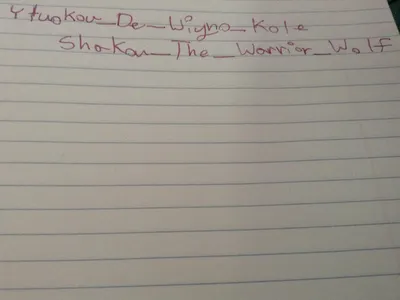 Ytuokou_De_Wiyno_Kole
Shokou_The_Warrior_Wolf